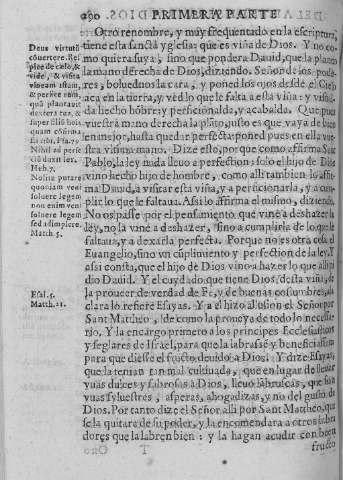 290 PRIMERA PARTE
Otro renombre, y muy frequentado en la escriptura,
tiene esta sancta yglesia: que es viña de Dios. Y no co-
mo quiera suya, sino que pondera Dauid, que la planto
la mano derecha de Dios, diziendo. Señor de los pode-
res, bolued nos la cara, y poned los ojos desde el Cielo
aca en la tierra, y ved lo que le falta a esta viña: y
da hecho hōbre: y perficionalda, y acabalda. Que pues
vuestra mano derecha la plāto, justo es que vaya de bien
en mejor, hasta quedar perfecta: poned pues en ella vue
stra diuina mano. Dize esto, por que como affirma Sant
Pablo, la ley nada lleuo a perfection: solo el hijo de Dios
vino hecho hijo de hombre, como alli tambien lo affir
ma Dauid, a visitar esta viña, y a perficionarla, y a cum
plir lo que le faltaua. Assi lo affirma el mismo, diziendo.
No os passe por el pensamiēto que vine a deshazer la
ley, no la vine a deshazer, sino a cumplirla de lo que le
faltaua, y a dexarla perfecta. Porque no es otra cosa el
Euangelio, sino vn cūplimiento y perfection de la ley. Y
assi consta, que el hijo de Dios vino a hazer lo que alli pi
dio Dauid. Y el cuydado que tiene Dios, desta viña, de
la proueer de verdad de Fe, y de buenas costumbres, a la
clara lo refiere Esayas. Y a el hizo alusion el Señor por
Sant Mattheo, de como la proueya de todo lo necessa-
rio. Y la encargo primero a los principes Ecclesiasticos
y seglares de Israel, para que la labrassē y beneficiassen
para que diesse el fructo deuido a Dios. Y dize Esayas,
que la tenian tan mal cultiuada, que en lugar de lleuar
vuas dulces y sabrosas a Dios, lleuo lābruscas, que son
vuas syluestres, asperas, ahogadizas, y no del gusto de
Dios. Por tanto dize el Señor alli por Sant Mattheo, que
se la quitara de su poder, y la encomendara a otros labra
dores que la labren bien: y la hagan acudir con buen
T fructo
Deus virtutū
cōuertere. Res
pice de celo, &
vide, & visita
vineam istam,
& perfice eam,
quā plantauit
dextera tua, &
super filiū hois
quam cōfirma
sti tibi. Psa. 79
Nihil ad perfe
ctū duxit lex.
Heb. 7.
Nolite putare
quoniam veni
soluere legem
non enim veni
soluere legem
sed adimplere.
Matth. 5.
Esai. 5.
Matth. 21.